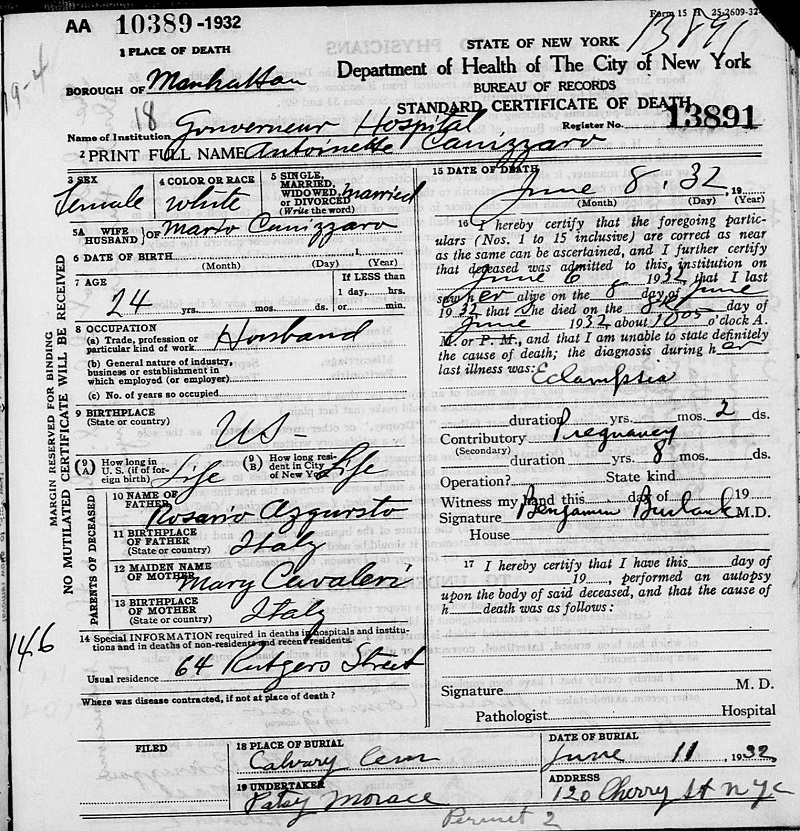 AA 10389-1932
Form 15 H 25-2609-32-
13891
1 PLACE OF DEATH
STATE OF NEW YORK
Department of Health of The City of New York
BUREAU OF RECORDS
BOROUGH OF Manhattan
STANDARD CERTIFICATE OF DEATH
18
Name of Institution Gouverneur Hospital
Register No. 13891
2 PRINT FULL NAME Antoinette Canizzaro
3 SEX Female
4 COLOR OR RACE White
5 SINGLE, MARRIED, WIDOWED, OR DIVORCED (Write the word) Married
5A WIFE HUSBAND } OF Mario Canizzaro
6 DATE OF BIRTH
(Month) (Day) (Year)
7 AGE 24 yrs. mos. ds.
If LESS than 1 day, hrs. or min.
8 OCCUPATION
(a) Trade, profession or particular kind of work
(b) General nature of industry, business or establishment in which employed (or employer)
(c) No. of years so occupied
9 BIRTHPLACE
(State or country) US-
(9 A) How long in U. S. (if of foreign birth) Life
(9 B) How long resident in City of New York Life
PARENTS OF DECEASED
10 NAME OF FATHER Rosario
11 BIRTHPLACE OF FATHER (State or country) Italy
12 MAIDEN NAME OF MOTHER Mary Cavaleri
13 BIRTHPLACE OF MOTHER (State or country) Italy
14 Special INFORMATION required in deaths in hospitals and institutions and in deaths of non-residents and recent residents.
146
Usual residence 64 Rutgers Street
Where was disease contracted, if not at place of death?
MARGIN RESERVED FOR BINDING
NO MUTILATED CERTIFICATE WILL BE RECEIVED
15 DATE OF DEATH
June 8, 32 19
(Month) (Day) (Year)
16 I hereby certify that the foregoing particulars (Nos. 1 to 15 inclusive) are correct as near
as the same can be ascertained, and I further certify
that deceased was admitted to this institution on
June 6 1932, that I last
saw her alive on the 8 day of June
1932 that She died on the 8 day of
June 1932 about 1005 o'clock A.
M. or P. M., and that I am unable to state definitely
the cause of death; the diagnosis during her
last illness was: Eclampsia
duration yrs. mos. 2 ds.
Contributory Pregnancy
(Secondary)
duration yrs. 8 mos. ds.
Operation? State kind
Witness my hand this day of 19
Signature Benjamin Burbank M.D.
House
17 I hereby certify that I have this day of
19 , performed an autopsy
upon the body of said deceased, and that the cause of
h death was as follows:
Signature M. D.
Pathologist Hospital
FILED
18 PLACE OF BURIAL
Calvary Cem
DATE OF BURIAL
June 11, 1932
19 UNDERTAKER
Patsy Morace
ADDRESS
120 Cherry St NYC
Permit 2